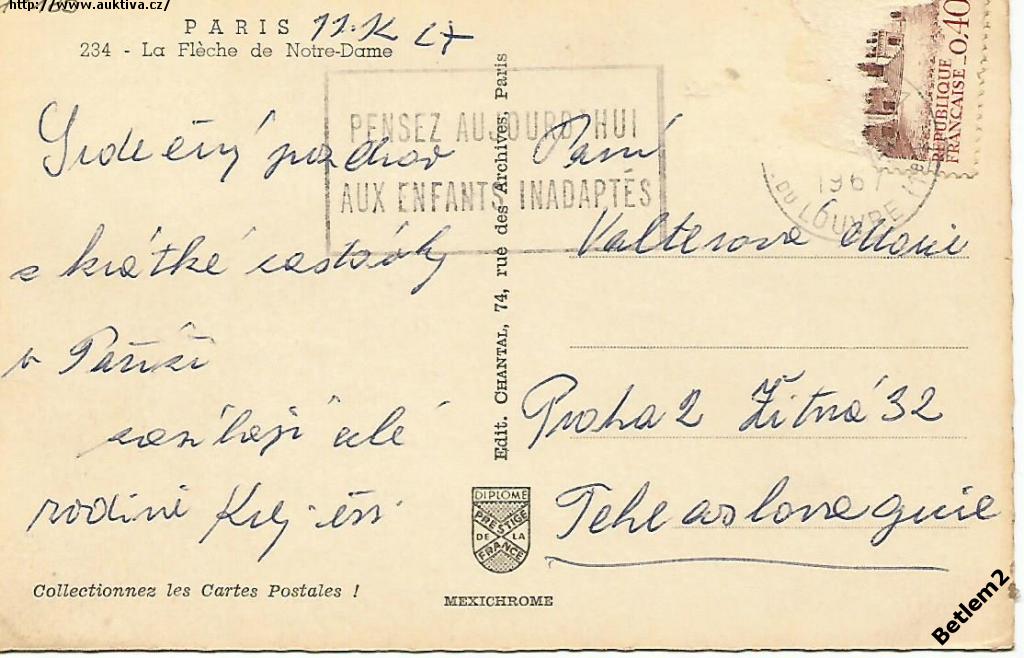 http://www.auktiva.cz/
PARIS 11.X 67
234 - La Flèche de Notre-Dame
PENSEZ AUJOURD'HUI
AUX ENFANTS INADAPTÉS
Srdečný pozdrav
z krátké zastávky
v Paříži
zasílají celé
rodině Krejčíri
Collectionnez les Cartes Postales !
Edit. CHANTAL, 74, rue des Archives, Paris
DIPLOME
PRESTIGE
DE LA
FRANCE
MEXICHROME
REPUBLIQUE
FRANCAISE_0,40
1967
DU LOUVRE
Paní
Valterová Marie
Praha 2 Žitná 32
Tchecoslovaquie
Betlem2